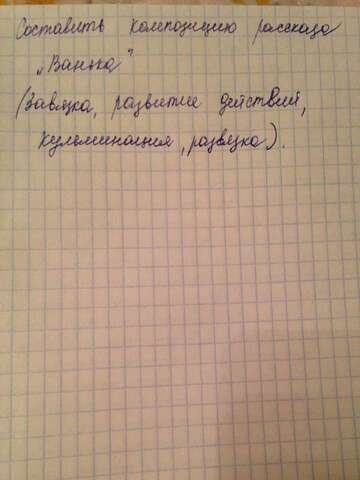 Составить композицию рассказа
„Ванька"
(Завязка, развитие действий,
кульминация, развязка).